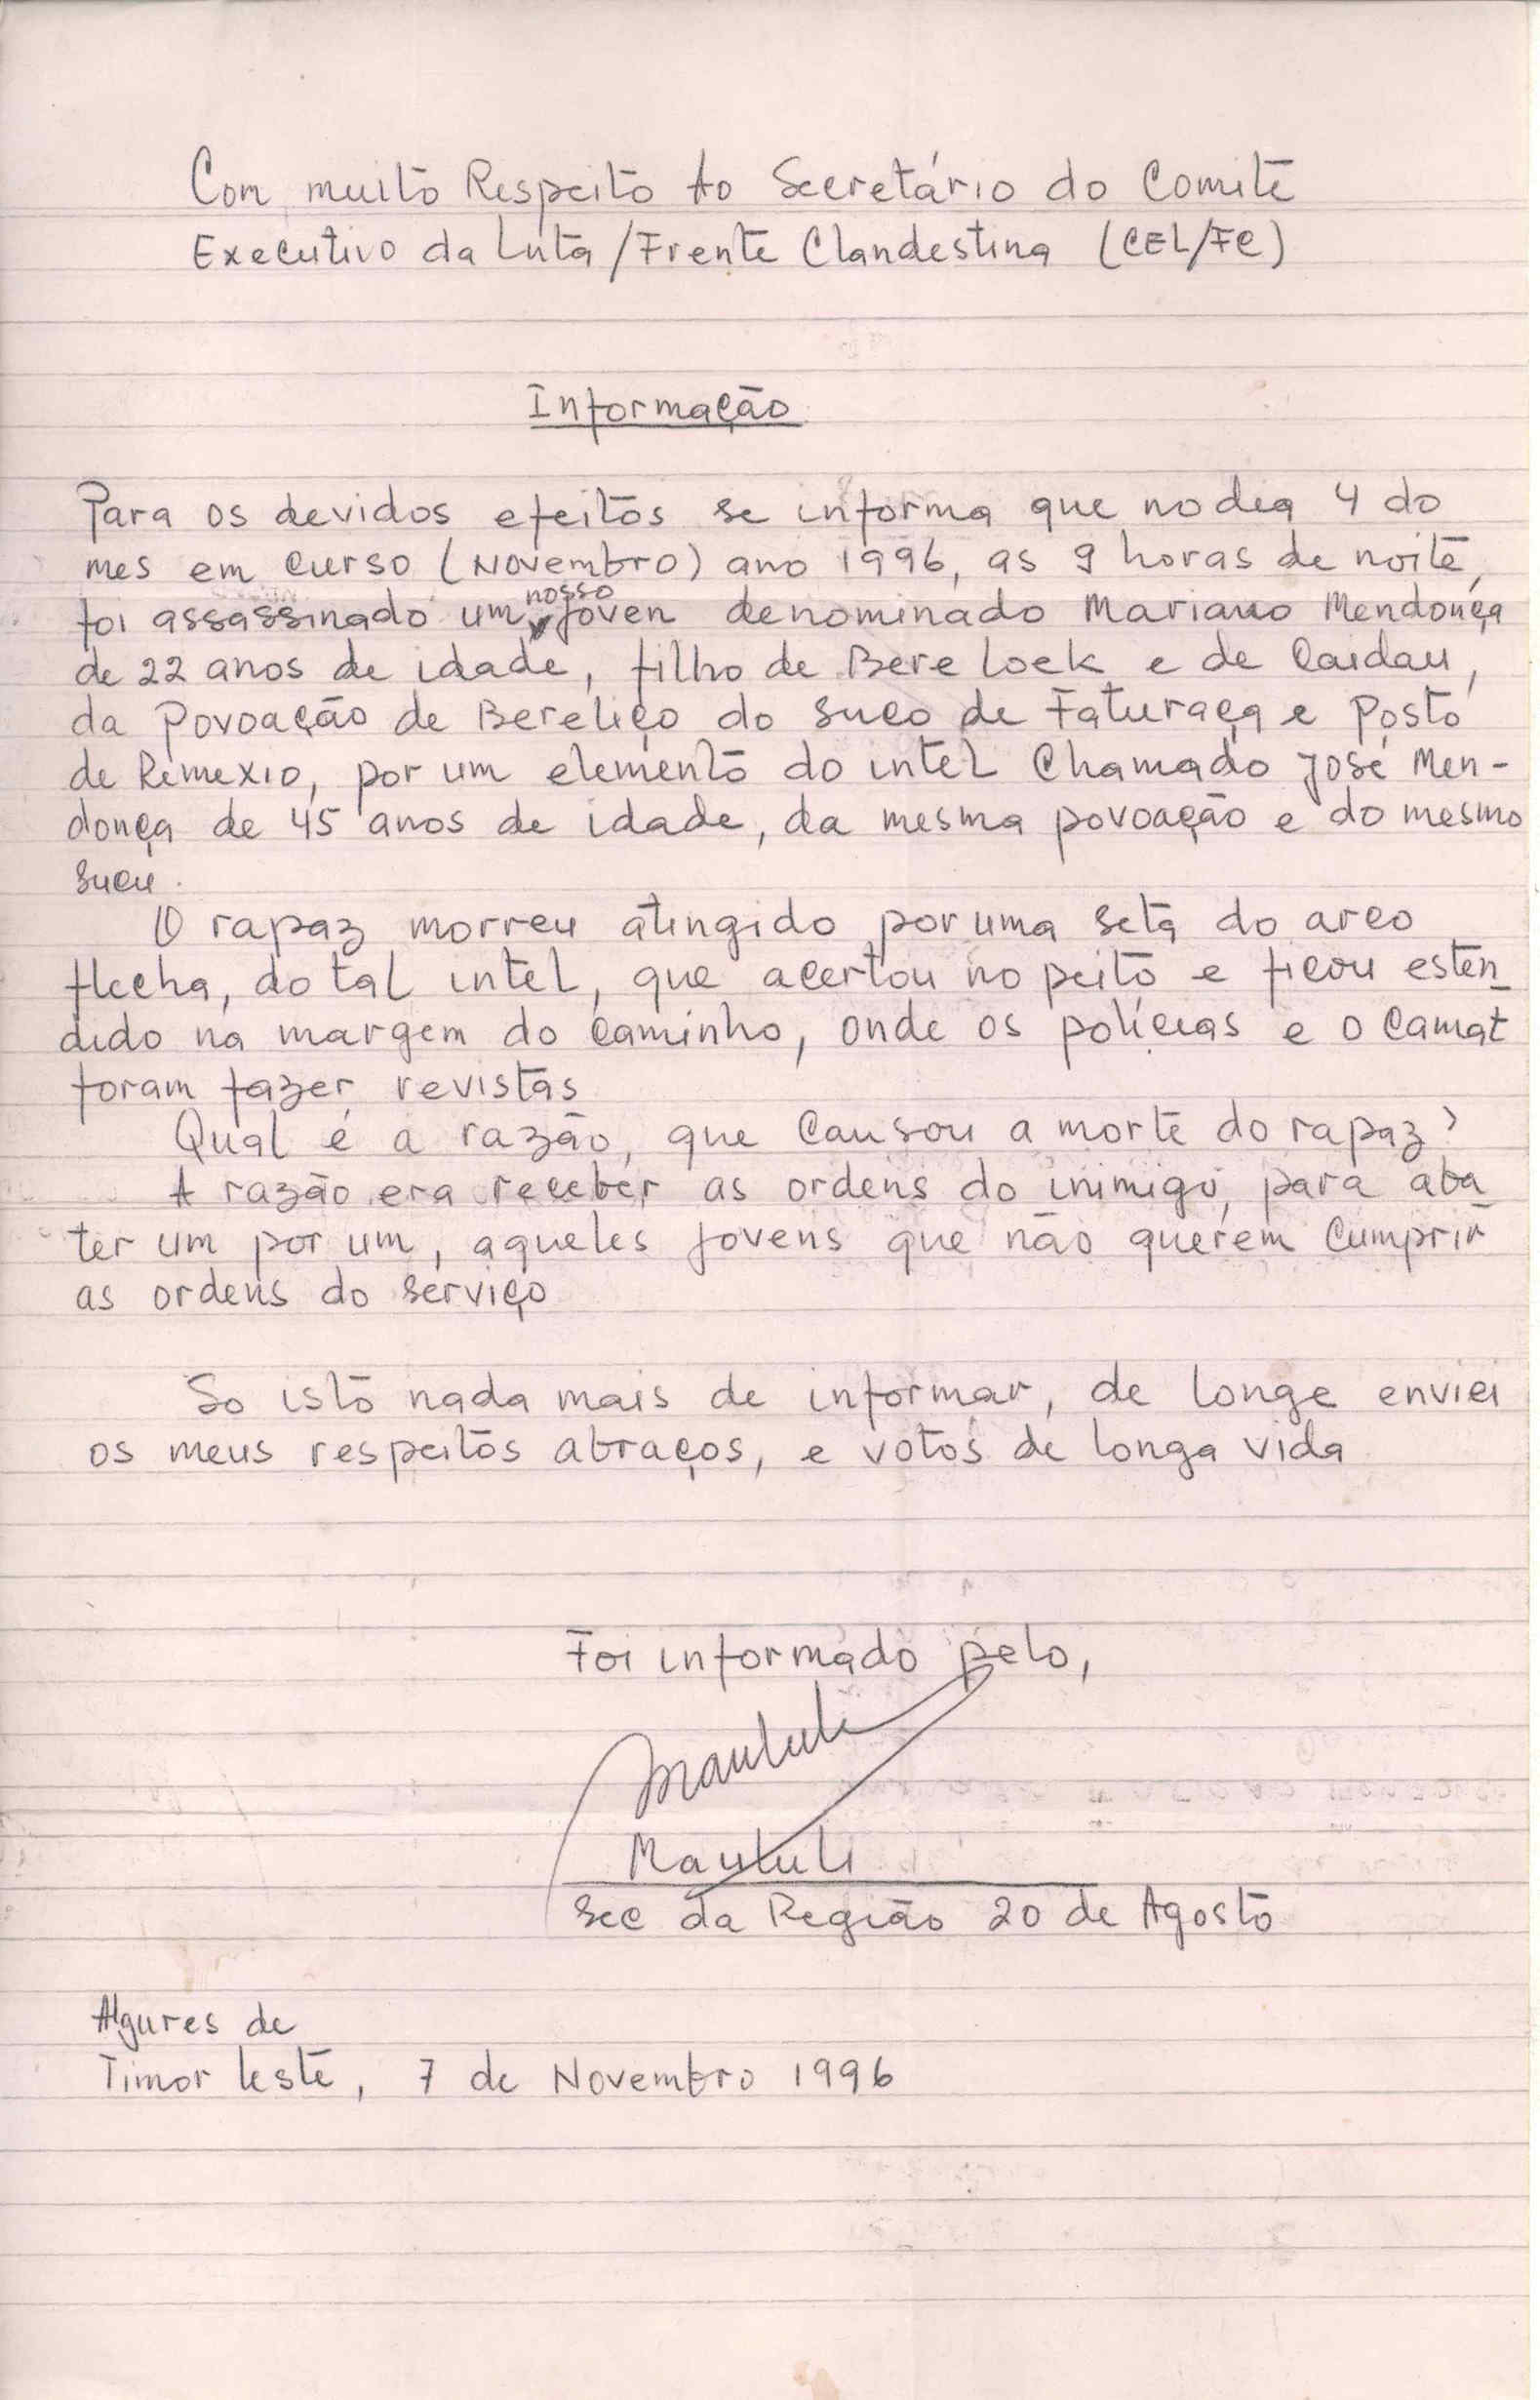 Com muito Respeito Ao Secretário do Comite
Executivo da Luta/Frente Clandestina (CEL/FC)
Informação
Para os devidos efeitos se informa que no dia 4 do
mes em curso (Novembro) ano 1996, as 9 horas de noite,
foi assassinado um nosso joven denominado Mariano Mendonça
de 22 anos de idade, filho de Bere Loek e de Caidau,
da Povoação de Bereliço do suco de Faturaça e Posto
de Remexio, por um elemento do intel Chamado José Men-
donça de 45 anos de idade, da mesma povoação e do mesmo
sucu.
O rapaz morreu atingido por uma seta do arco
flecha, do tal intel, que acertou no peito e ficou esten
dido na margem do caminho, onde os polícias e o Camat
foram fazer revistas
Qual é a razão, que causou a morte do rapaz?
A razão era receber as ordens do inimigo, para aba
ter um por um, aqueles jovens que não querem cumprir
as ordens do serviço
So isto nada mais de informar, de longe enviei
os meus respeitos abraços, e votos de longa vida
Foi informado pelo,
Maululi
Maululi
Sec da Região 20 de Agosto
Algures de
Timor Leste, 7 de Novembro 1996